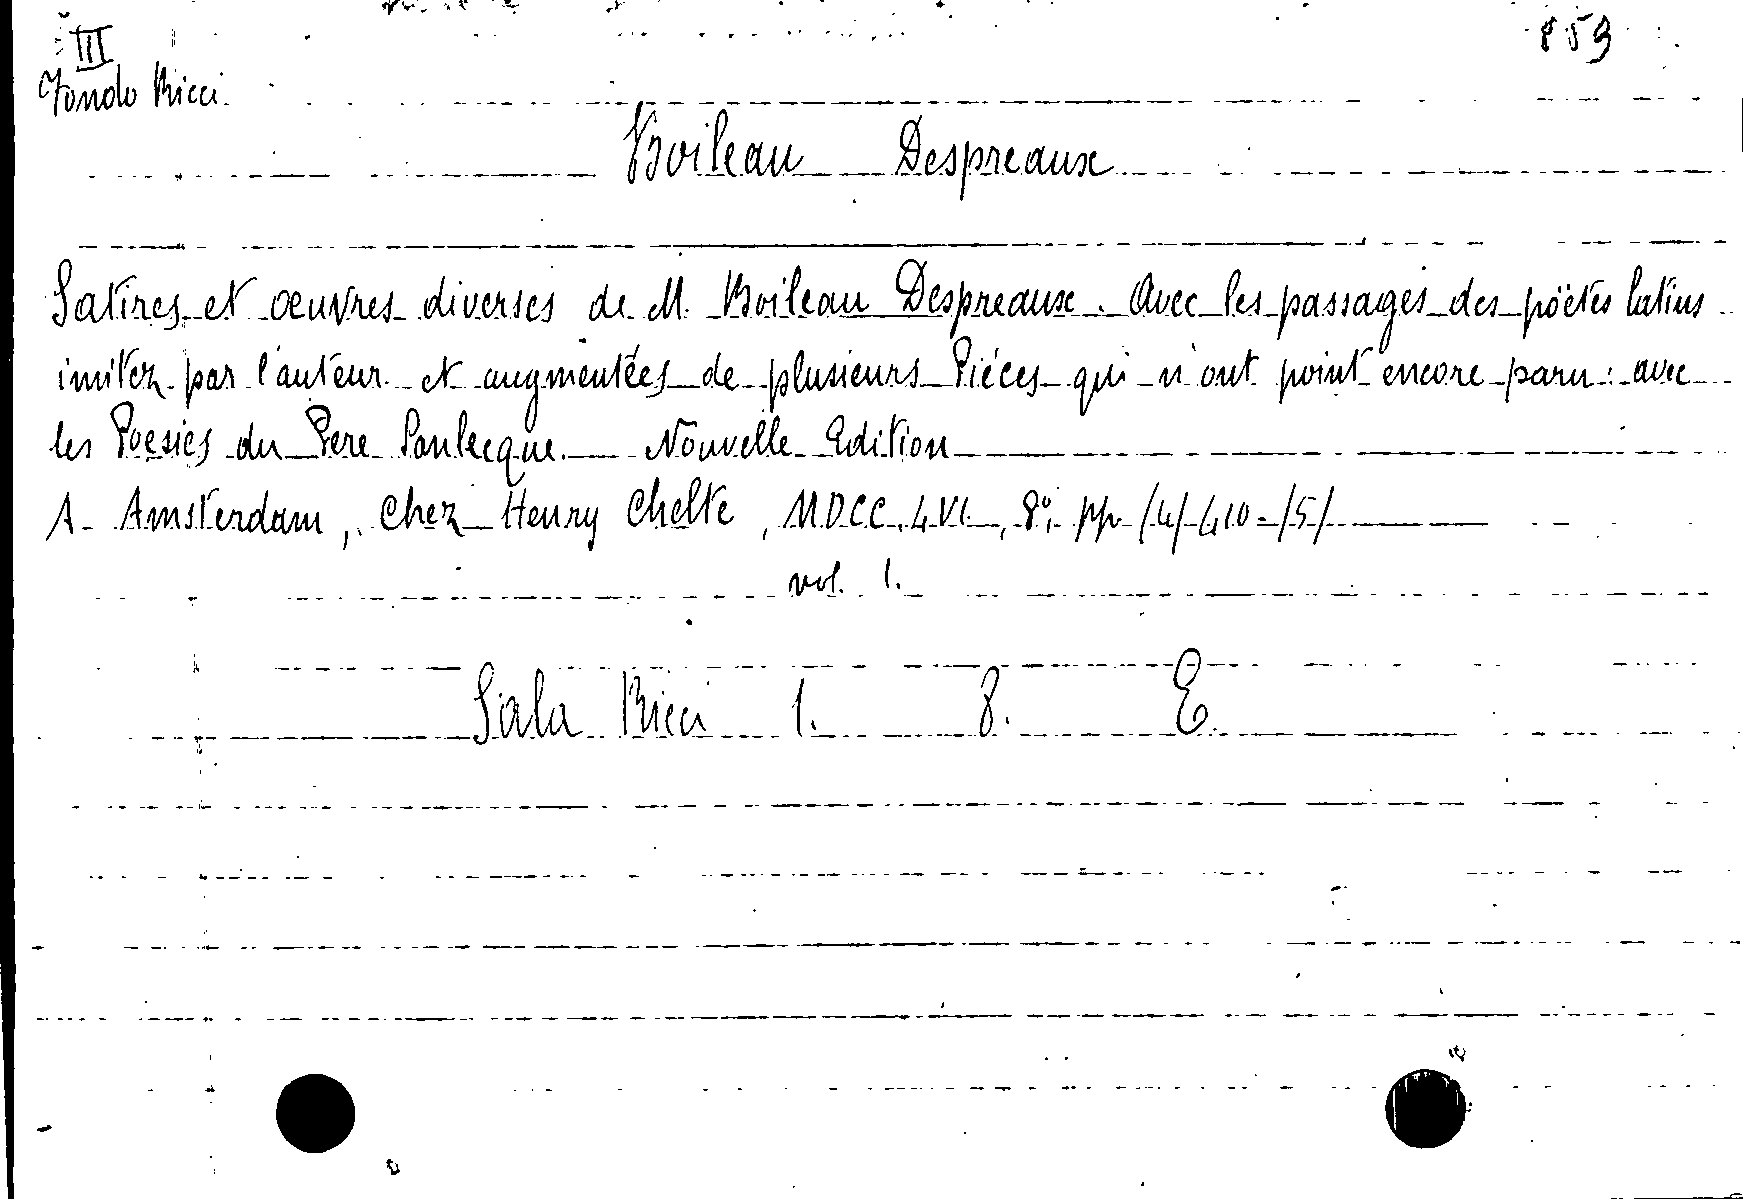 III
859
Fondo Ricci
Boileau Despreaux
Satires et œuvres diverses de M. Boileau Despreaux. Avec les passages des pöetes latins
imitez par l'auteur et augmentées de plusieurs Piéces qui n'ont point encore paru: avec
les Poesies du Pere Sanlecque. Nouvelle Edition
A Amsterdam, chez Henry Chelte, MDCC.LVI., 8°, pp /4/ 410 /5/
vol. 1.
Sala Ricci 1. 8. E.